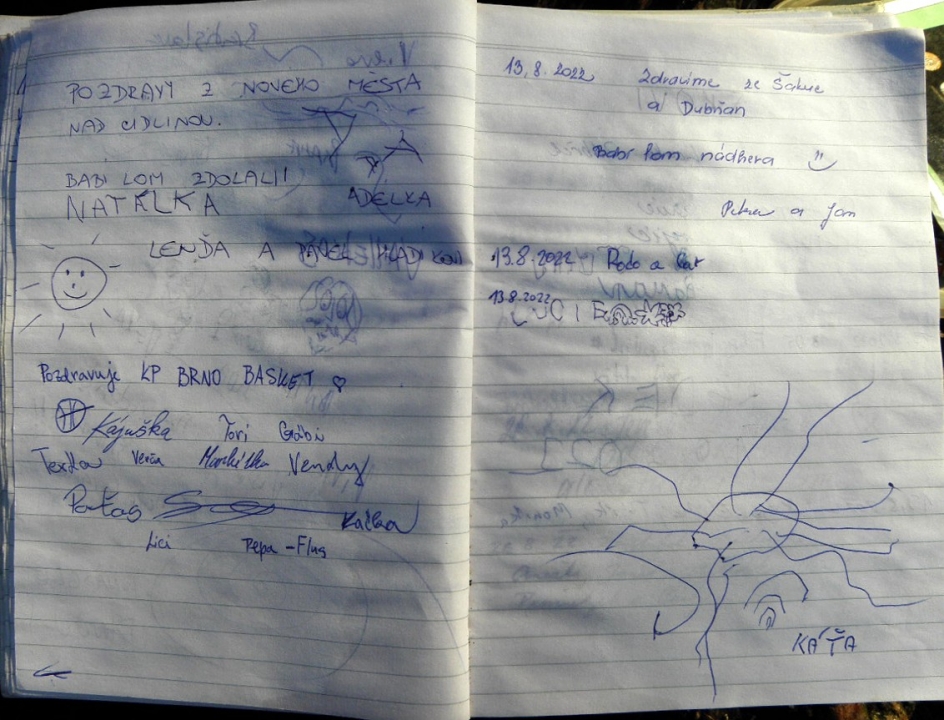 POZDRAVY Z NOVÉHO MĚSTA
NAD CIDLINOU.
BABÍ LOM ZDOLALI!
NATÁLKA ADÉLKA
LENĎA A PAVEL HLADÍKOVI
Pozdravuje KP BRNO BASKET ♡
Kájuška Tori Gábi
Terda Verča Markétka Vendy
Paťas Kačka
Lici Pepa-Flus
13.8.2022 Zdravíme ze Šakvic
a Dubňan
Babí lom nádhera
Petra a Jan
13.8.2022 Rado a
13.8.2022
LUCIE
KÁŤA